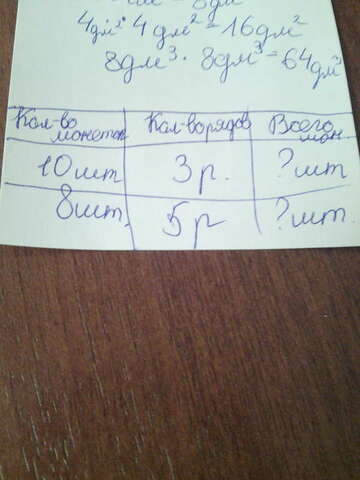 4дм² 4дм² = 16дм²
8дм³ · 8дм³ = 64дм³
Кол-во монеток Кол-во рядов Всего мон.
10шт 3р. ?шт
8шт. 5р ?шт.